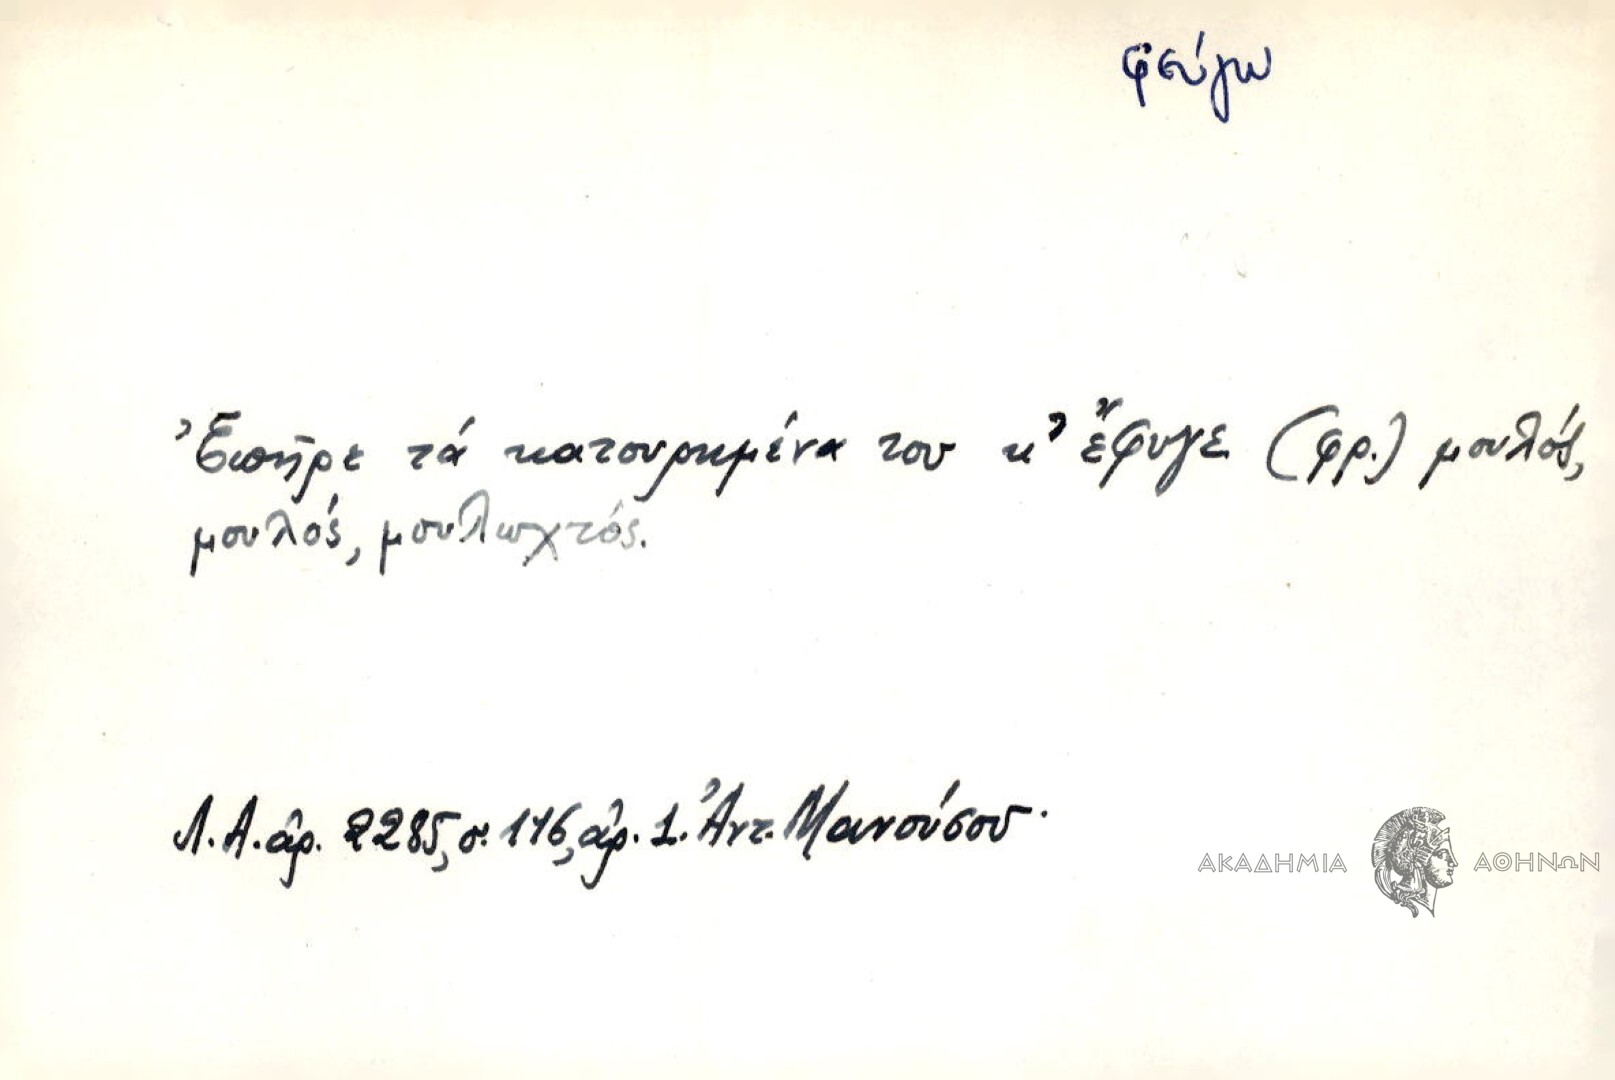 φεύγω
Ἐπῆρε τά κατουρημένα του κ' ἔφυγε (φρ.) μουλός,
μουλός, μουλωχτός.
Λ.Α. ἀρ. 2285, σ. 116, ἀρ. 1. Ἀντ. Μανούσου.
ΑΚΑΔΗΜΙΑ ΑΘΗΝΩΝ